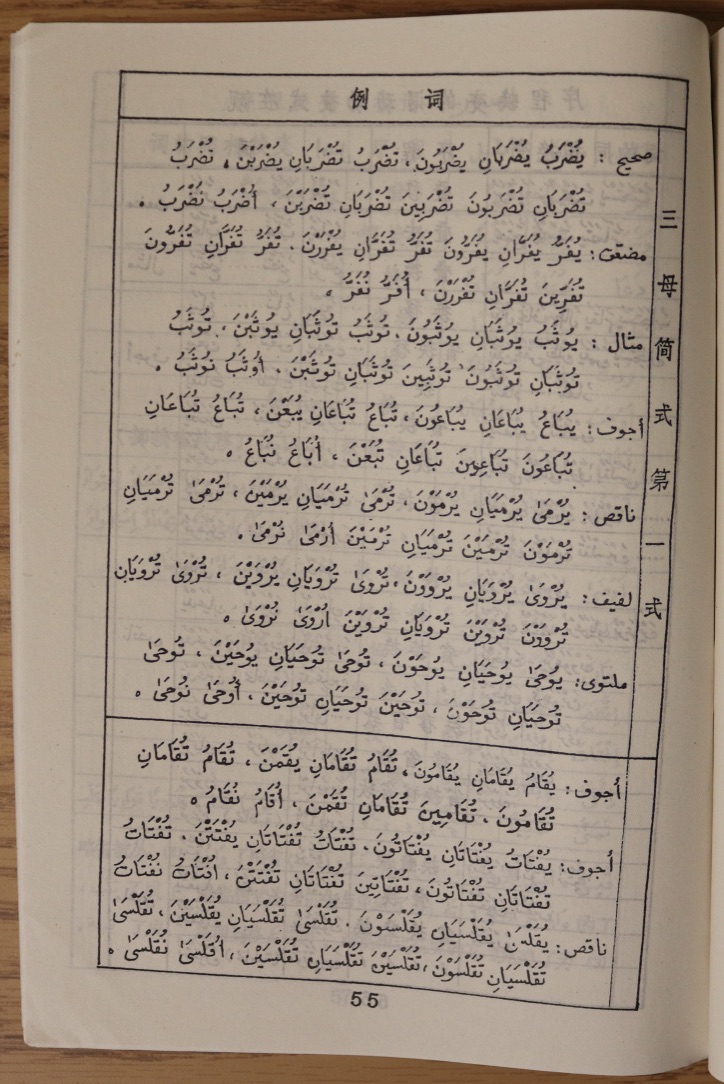 例 词
三母简式第一式
صحيح : يُضْرَبُ يُضْرَبَانِ يُضْرَبُونَ، تُضْرَبُ تُضْرَبَانِ يُضْرَبْنَ، تُضْرَبُ
تُضْرَبَانِ تُضْرَبُونَ تُضْرَبِينَ تُضْرَبَانِ تُضْرَبْنَ، أُضْرَبُ نُضْرَبُ .
يُفَرُّ يُفَرَّانِ يُفَرُّونَ تُفَرُّ تُفَرَّانِ يُفْرَرْنَ. تُفَرُّ تُفَرَّانِ تُفَرُّونَ
تُفَرِّينَ تُفَرَّانِ تُفْرَرْنَ، أُفَرُّ نُفَرُّ .
مثال : يُوثَبُ يُوثَبَانِ يُوثَبُونَ. تُوثَبُ تُوثَبَانِ يُوثَبْنَ، تُوثَبُ
تُوثَبَانِ تُوثَبُونَ تُوثَبِينَ تُوثَبَانِ تُوثَبْنَ. أُوثَبُ نُوثَبُ .
أجوف: يُبَاعُ يُبَاعَانِ يُبَاعُونَ، تُبَاعُ تُبَاعَانِ يُبَعْنَ، تُبَاعُ تُبَاعَانِ
تُبَاعُونَ تُبَاعِينَ تُبَاعَانِ تُبَعْنَ، أُبَاعُ نُبَاعُ .
ناقص: يُرْمَىٰ يُرْمَيَانِ يُرْمَوْنَ، تُرْمَىٰ تُرْمَيَانِ يُرْمَيْنَ، تُرْمَىٰ تُرْمَيَانِ
تُرْمَوْنَ تُرْمَيْنَ تُرْمَيَانِ تُرْمَيْنَ أُرْمَىٰ نُرْمَىٰ .
لفيف: يُرْوَىٰ يُرْوَيَانِ يُرْوَوْنَ، تُرْوَىٰ تُرْوَيَانِ يُرْوَيْنَ، تُرْوَىٰ تُرْوَيَانِ
تُرْوَوْنَ تُرْوَيْنَ تُرْوَيَانِ تُرْوَيْنَ أُرْوَىٰ نُرْوَىٰ .
ملتوى: يُوحَىٰ يُوحَيَانِ يُوحَوْنَ، تُوحَىٰ تُوحَيَانِ يُوحَيْنَ، تُوحَىٰ
تُوحَيَانِ تُوحَوْنَ، تُوحَيْنَ تُوحَيَانِ تُوحَيْنَ، أُوحَىٰ نُوحَىٰ .
أجوف: يُقَامُ يُقَامَانِ يُقَامُونَ، تُقَامُ تُقَامَانِ يُقَمْنَ، تُقَامُ تُقَامَانِ
تُقَامُونَ. تُقَامِينَ تُقَامَانِ تُقَمْنَ، أُقَامُ نُقَامُ .
أجوف: يُفْتَاتُ يُفْتَاتَانِ يُفْتَاتُونَ. تُفْتَاتُ تُفْتَاتَانِ يُفْتَتْنَ. تُفْتَاتُ
تُفْتَاتَانِ تُفْتَاتُونَ، تُفْتَاتِينَ تُفْتَاتَانِ تُفْتَتْنَ، أُفْتَاتُ نُفْتَاتُ
ناقص: يُقَلْسَىٰ يُقَلْسَيَانِ يُقَلْسَوْنَ. تُقَلْسَىٰ تُقَلْسَيَانِ يُقَلْسَيْنَ، تُقَلْسَىٰ
تُقَلْسَيَانِ تُقَلْسَوْنَ، تُقَلْسَيْنَ تُقَلْسَيَانِ تُقَلْسَيْنَ، أُقَلْسَىٰ نُقَلْسَىٰ .
55